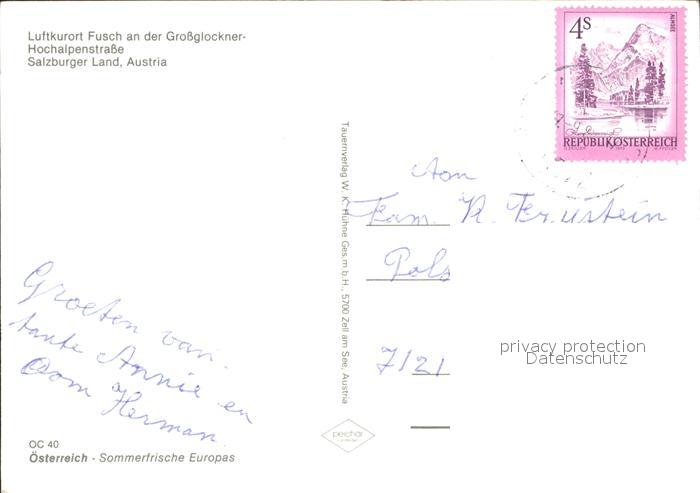 Luftkurort Fusch an der Großglockner-
Hochalpenstraße
Salzburger Land, Austria
4s
ALMSEE
REPUBLIK ÖSTERREICH
Tauernverlag W. K. Hühne Ges.m.b.H., 5700 Zell am See, Austria
Aan
Fam. R. Frustein
Pols
7/21
privacy protection
Datenschutz
Groeten van
tante Annie en
Oom Herman.
OC 40
Österreich - Sommerfrische Europas